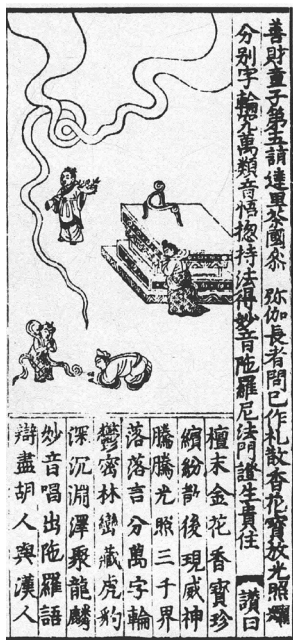 善財童子第五詣達里茶國叅　弥伽長者問已作礼散香花寶放光照耀
分别字輪於萬類音悟揔持法得妙音陁羅尼法門證生貴住　讃曰
檀末金花香寶珍
繽紛散後現威神
騰騰光照三千界
落落言分萬字輪
鬱密林巒藏虎豹
深沉淵澤聚龍麟
妙音唱出陁羅語
辯盡胡人與漢人